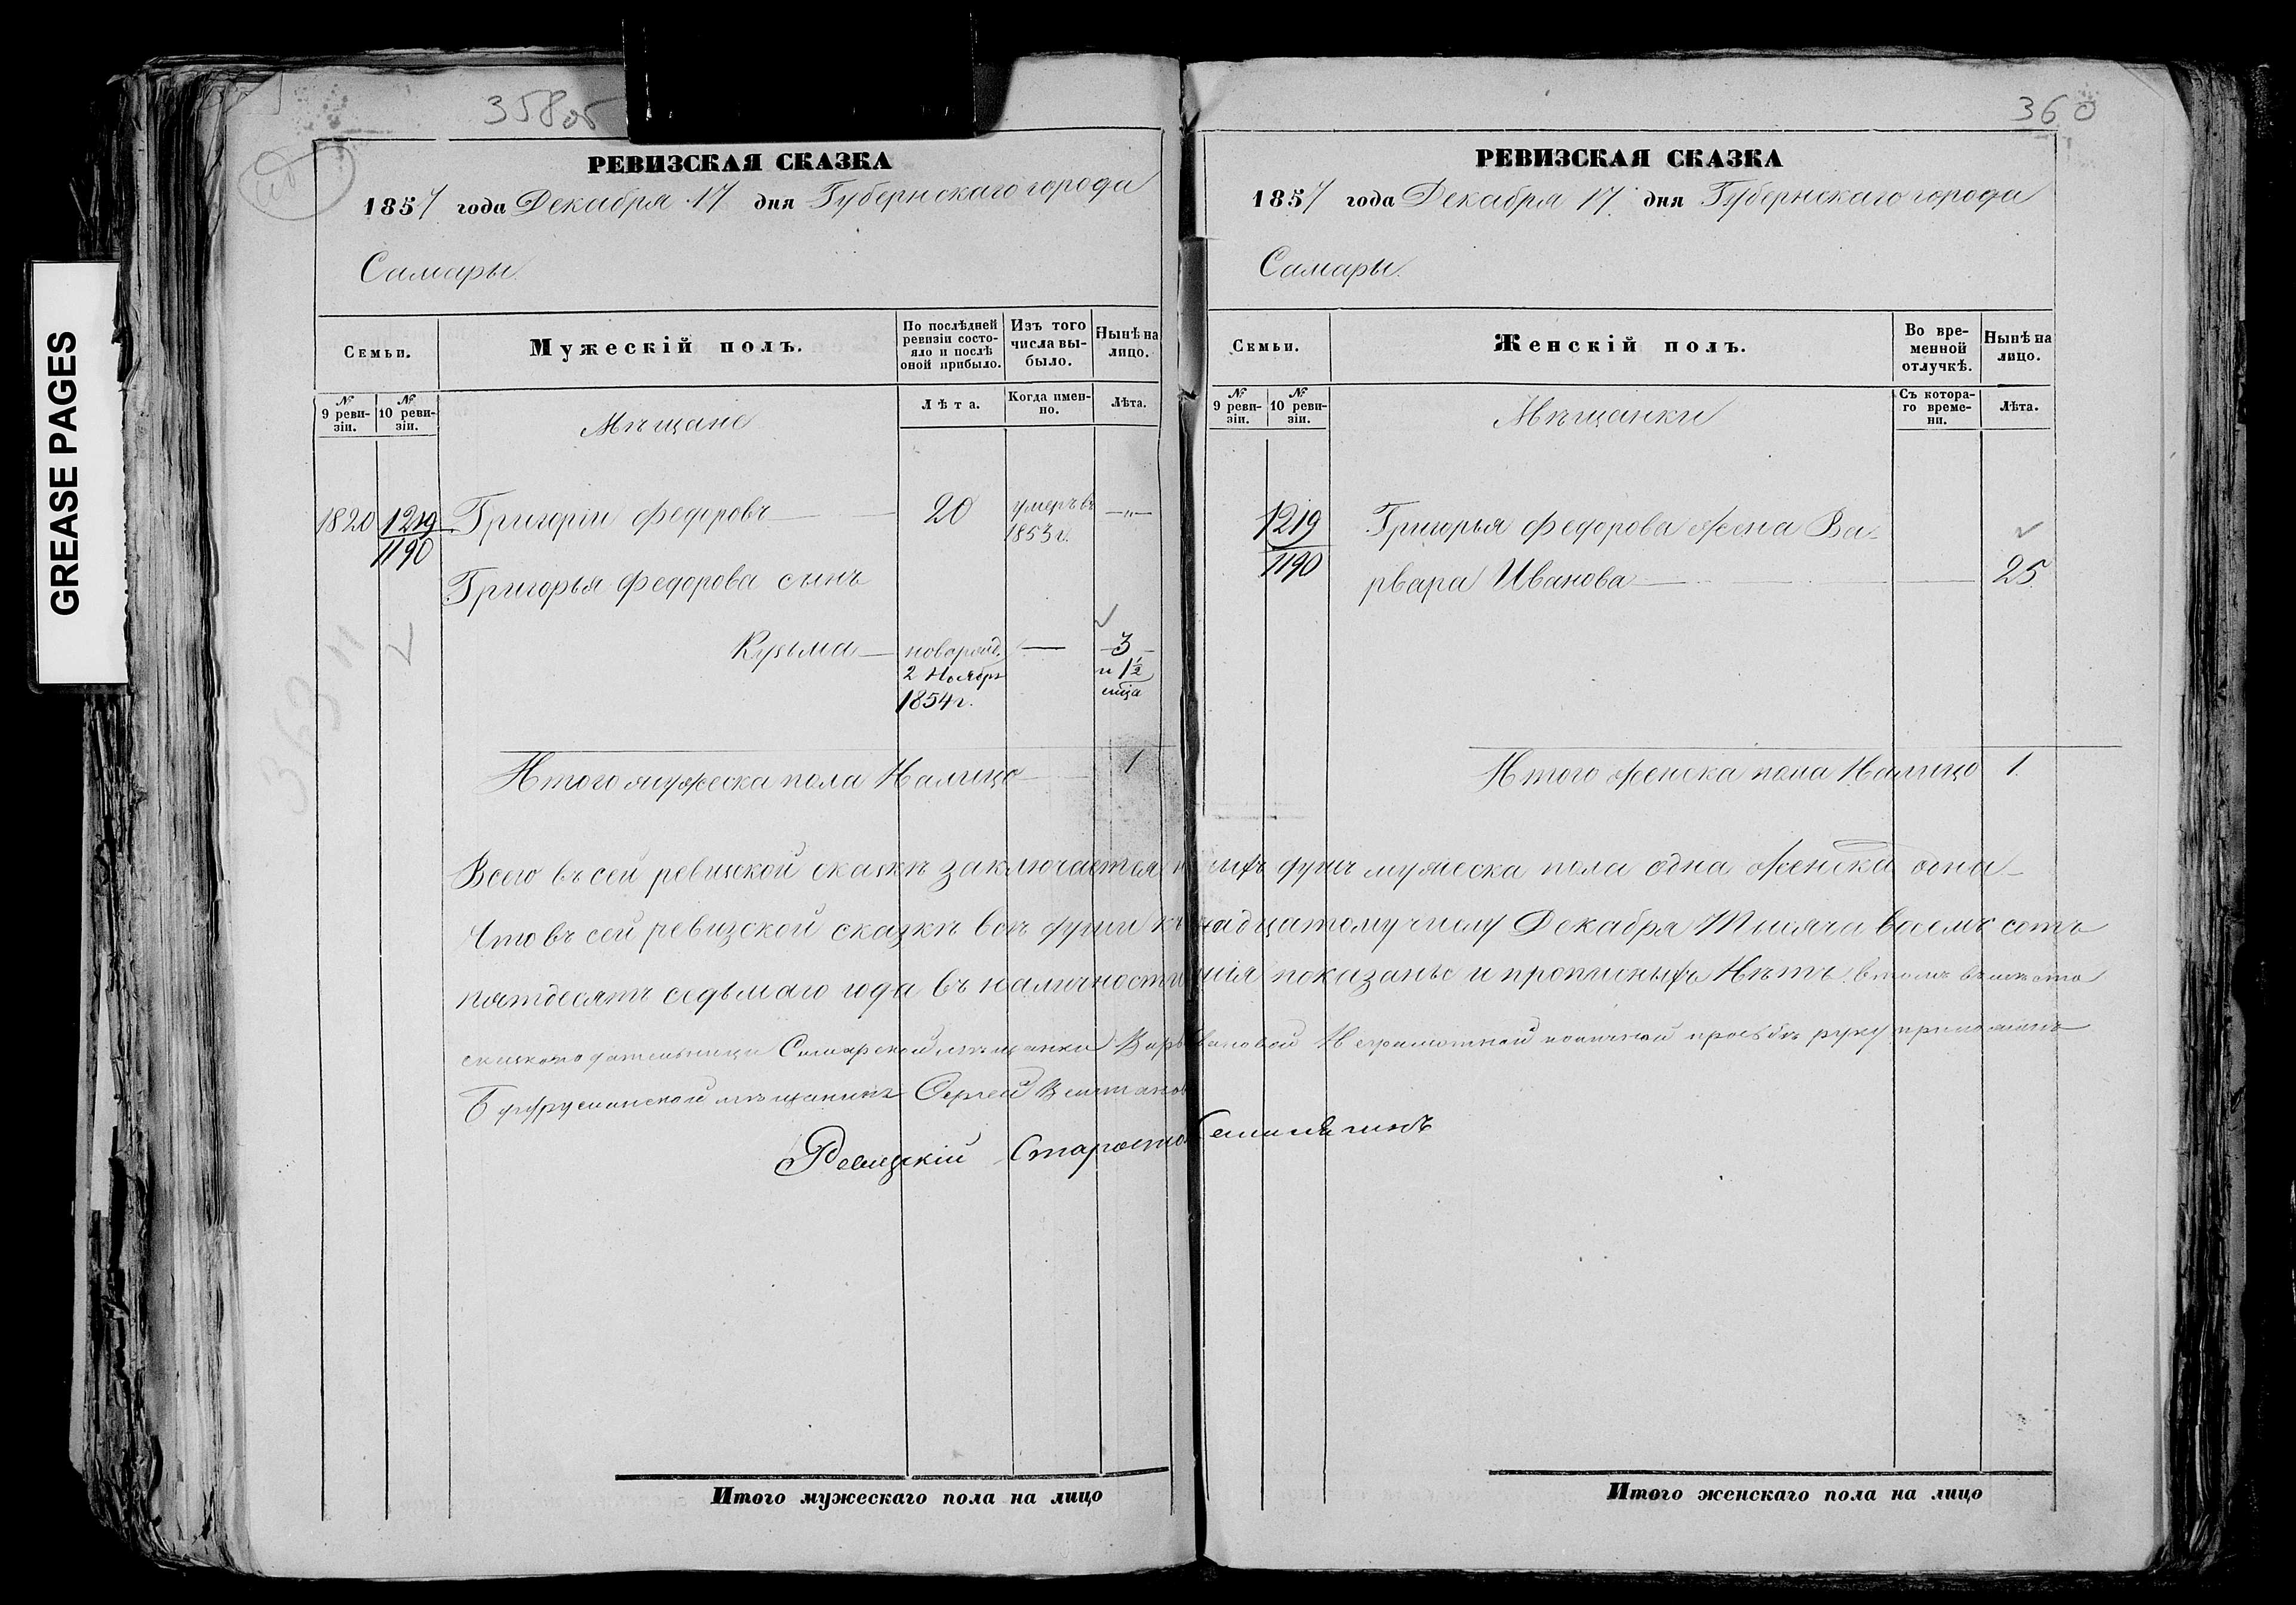 GREASE PAGES
358об
РЕВИЗСКАЯ СКАЗКА
1857 года Декабря 17 дня Губернскаго города
Самары.
Семьи.
Мужескій полъ.
По послѣдней ревизіи состояло и послѣ оной прибыло.
Изъ того числа выбыло.
Нынѣ на лицо.
№ 9 ревизіи.
№ 10 ревизіи.
Мѣщане
Лѣта.
Когда именно.
Лѣта.
1820 1219 Григорій Федоровъ — 20 умеръ въ 1853 г. — „ —
1190
Григорья Федорова сынъ
Кузьма — новорожд. 2 Ноября 1854 г. — 3 и 1½ мца
Итого мужеска пола Налицо 1
360
РЕВИЗСКАЯ СКАЗКА
1857 года Декабря 17 дня Губернскаго города
Самары.
Семьи.
Женскій полъ.
Во временной отлучкѣ.
Нынѣ на лицо.
№ 9 ревизіи.
№ 10 ревизіи.
Мѣщанки
Съ котораго времени.
Лѣта.
1219 Григорья Федорова жена Ва-
1190 рвара Иванова — 25
Итого женска пола Налицо 1.
Всего въ сей ревизской сказкѣ заключается душъ мужеска пола одна женска одна
Что въ сей ревизской сказкѣ всѣ души къ надцатому числу Декабря Тысяча восемь сотъ
пятдесятъ седьмаго года въ наличности показаны и прописныхъ Нѣтъ. в томъ въмѣсто
сказкоподательницы Самарской мѣщанки Неграмотной по личной просьбѣ руку приложилъ
мѣщанинъ Сергей
Ревизскій Староста
Итого мужескаго пола на лицо
Итого женскаго пола на лицо